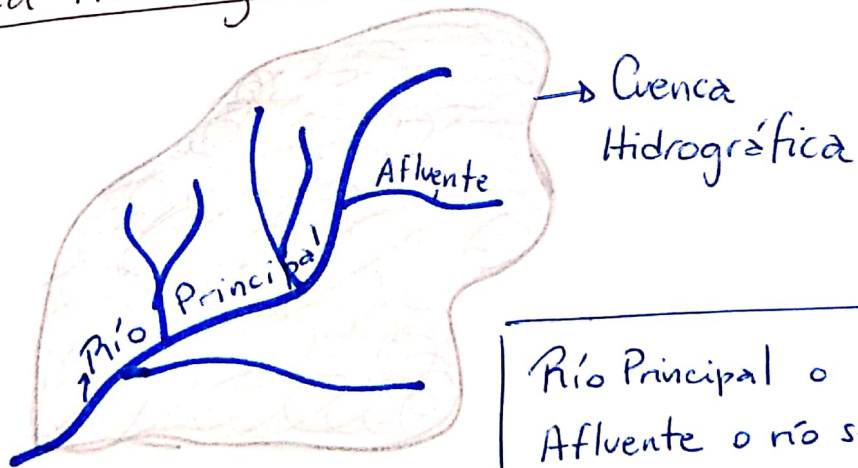 Cuenca
Hidrográfica
Afluente
Río Principal
Río Principal o
Afluente o río